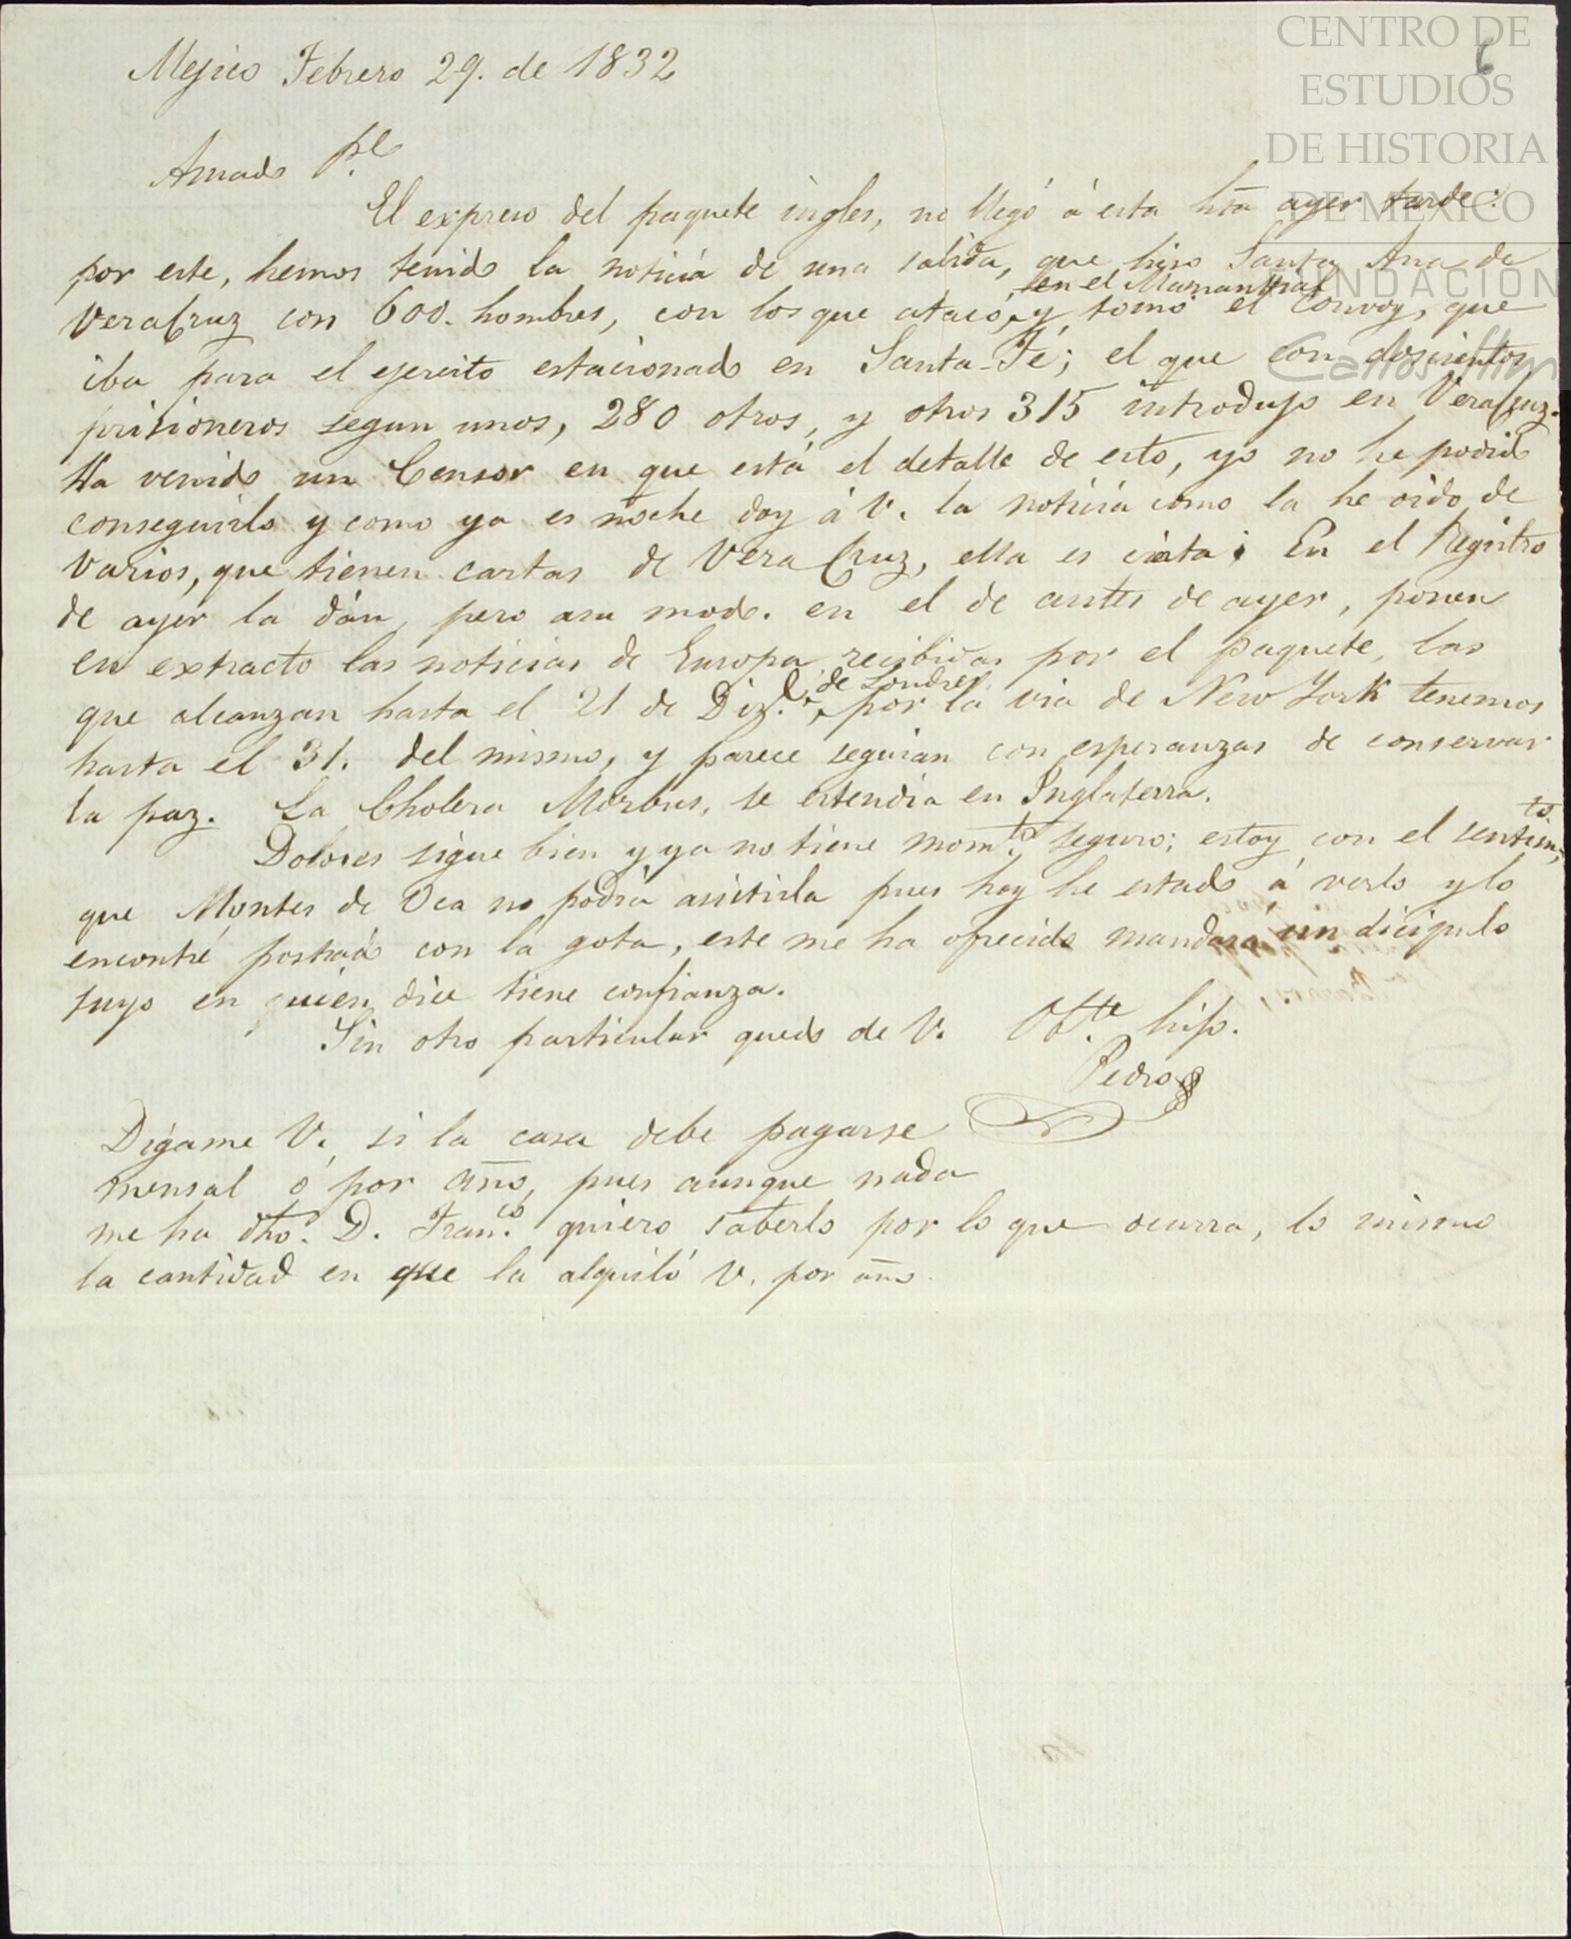 CENTRO DE
ESTUDIOS
DE HISTORIA
DE MEXICO
FUNDACIÓN
Carlos Slim
6
Mejico Febrero 29. de 1832
Amado P.e
El expreso del paquete ingles, no llegó á esta hta ayer tarde:
por este, hemos tenido la noticia de una salida, que hiso Santa Ana de
VeraCruz con 600. hombres, con los que atacó, en el Manantial y tomó el Convoy, que
iba para el ejercito estacionado en Santa-Fé; el que con doscientos
prisioneros segun unos, 280 otros, y otros 315 introdujo en VeraCruz.
Ha venido un Censor en que está el detalle de esto, yo no he podido
conseguirlo y como ya es noche doy á V. la noticia como la he oido de
varios, que tienen cartas de Vera Cruz, ella es cierta; En el Registro
de ayer la dán, pero asu modo. en el de antes de ayer, ponen
en extracto las noticias de Europa recibidas por el paquete, las
que alcanzan hasta el 21 de Diz.e, de Londres por la via de New York tenemos
hasta el 31. del mismo, y parece seguian con esperanzas de conservar
la paz. La Cholera Morbus, se estendia en Inglaterra.
Dolores sigue bien y ya no tiene mom.to seguro; estoy con el sentim.to
que Montes de Oca no podrá asistirla pues hoy he estado á verlo y lo
encontré postrado con la gota, este me ha ofrecido mandará un dicipulo
suyo en quien dice tiene confianza.
Sin otro particular quedo de V. Ob.te hijo.
Pedro
Digame V. si la casa debe pagarse
mensal ó por año, pues aunque nada
me ha dho. D. Fran.co quiero saberlo por lo que ocurra, lo mismo
la cantidad en que la alquiló V. por año.